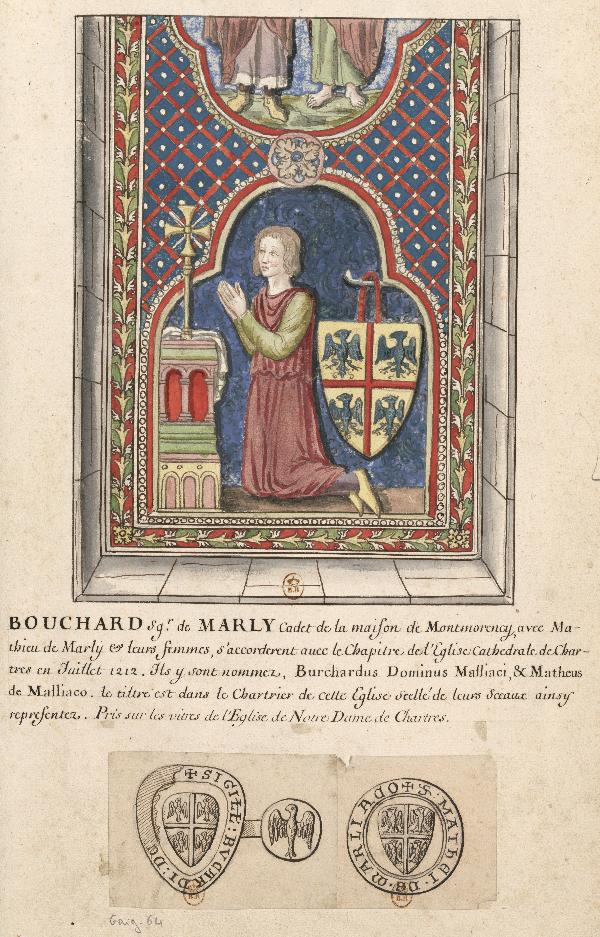 BOUCHARD Sgr. de MARLY Cadet de la maison de Montmorency, avec Ma-
thieu de Marly & leurs femmes, s'accorderent avec le Chapitre de l'Eglise Cathedrale de Char-
tres en Juillet 1212. Ils y sont nommez, Burchardus Dominus Malliaci, & Matheus
de Malliaco. le tiltre est dans le Chartrier de cette Eglise scellé de leurs sceaux ainsy
representez. Pris sur les vitres de l'Eglise de Nostre Dame de Chartres.
✠ SIGILL: BVCARDI: DE
✠ S: MATHEI: DE: MARLIACO
Gaig. 64